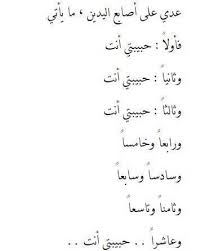 عدي على أصابع اليدين ، ما يأتي
فأولاً : حبيبتي أنت
وثانياً : حبيبتي أنت
وثالثاً : حبيبتي أنت
ورابعاً وخامساً
وسادساً وسابعاً
وثامناً وتاسعاً
وعاشراً . . حبيبتي أنت . .